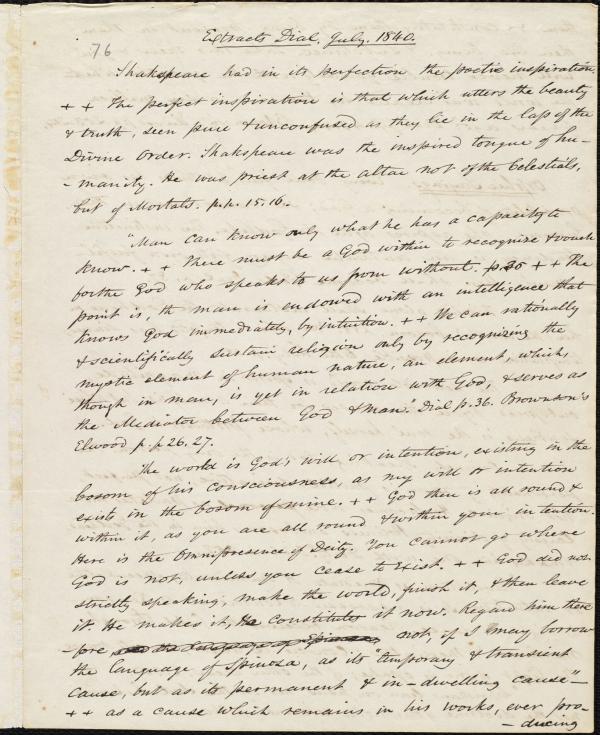 Extracts Dial. July. 1840.
76
Shakspeare had in its perfection the poetic inspiration.
+ + The perfect inspiration is that which utters the beauty
& truth, seen pure & unconfused as they lie in the lap of the
Divine Order. Shakspeare was the inspired tongue of hu-
-manity. He was priest at the altar not of the Celestials,
but of Mortals. p.p. 15.16.
"Man can know only what he has a capacity to
know. + + There must be a God within to recognize & vouch
for the God who speaks to us from without. p.36 + + The
point is, th man is endowed with an intelligence that
knows God immediately, by intuition. + + We can rationally
& scientifically sustain religion only by recognizing the
mystic element of human nature, an element, which,
though in man, is yet in relation with God, & serves as
the Mediator between God & Man." Dial p. 36. Brownson's
Elwood p. p. 26. 27.
The world is God's will or intention, existing in the
bosom of his consciousness, as my will or intention
exists in the bosom of mine. + + God then is all round &
within it, as you are all round & within your intention.
Here is the Omnipresence of Deity. You cannot go where
God is not, unless you cease to exist. + + God did not
strictly speaking, make the world, finish it, & then leave
it. He makes it, He constitutes it now. Regard him there
-fore and the language of Spinoza, not, if I may borrow
the language of Spinoza, as its "temporary & transient
cause, but as its permanent & in-dwelling cause"-
+ + as a cause which remains in his works, ever pro-
-ducing